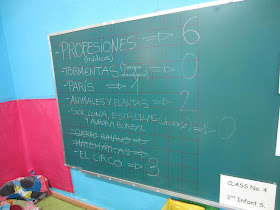 - PROFESIONES ⇒ 6
(médicos)
- TORMENTAS ⇒ 0
- PARÍS ⇒ 1
- ANIMALES Y PLANTAS ⇒ 2
- SOL, LUNA, ESTRELLAS ⇒ 0
Y AURORA BOREAL
- CUERPO HUMANO ⇒
- MATEMÁTICAS ⇒
- EL CIRCO ⇒ 3
CLASS No. 4
2nd Infant S.